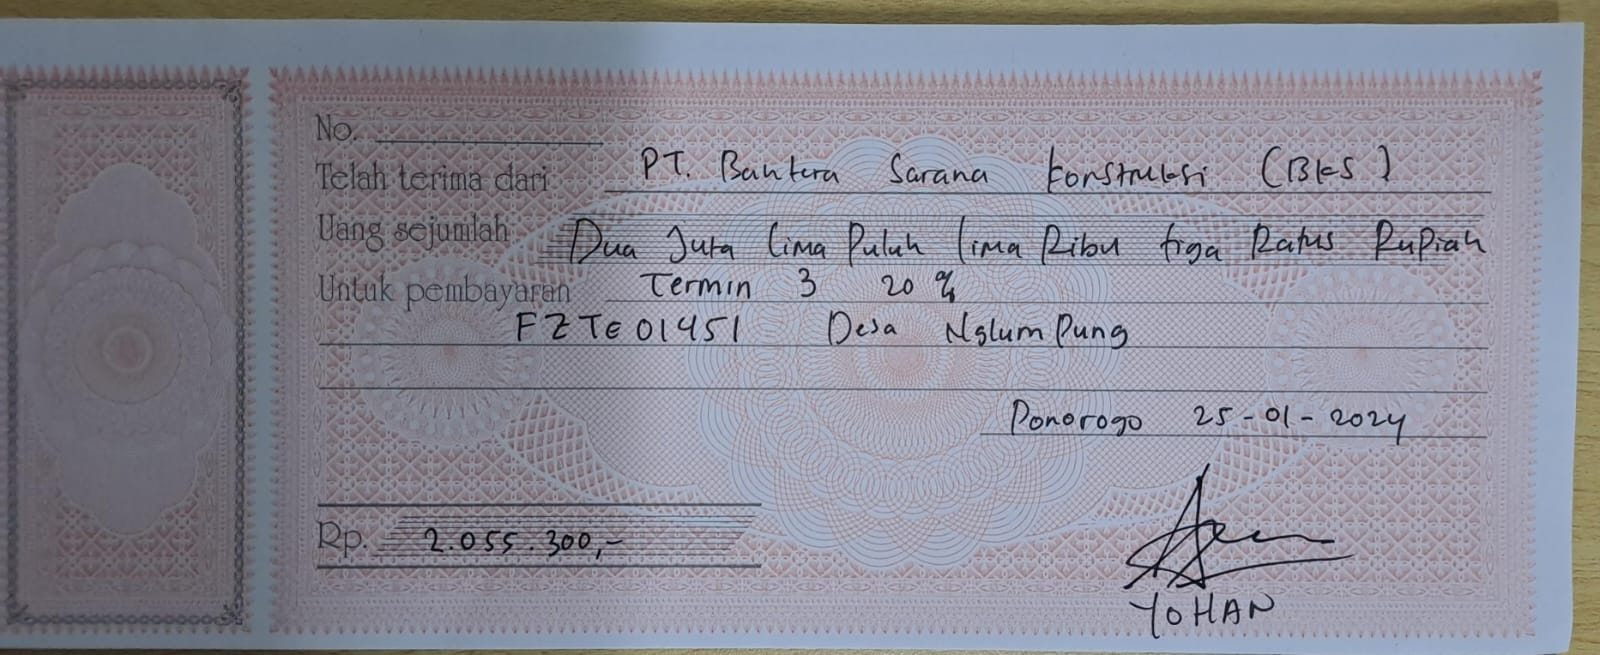 No.
Telah terima dari PT. Bahtera Sarana Konstruksi (BKS)
Uang sejumlah Dua Juta Lima Puluh lima Ribu tiga Ratus Rupiah
Untuk pembayaran Termin 3 20 %
FZTE01451 Desa Nglumpung
Ponorogo 25-01-2024
Rp. 2.055.300,-
YOHAN